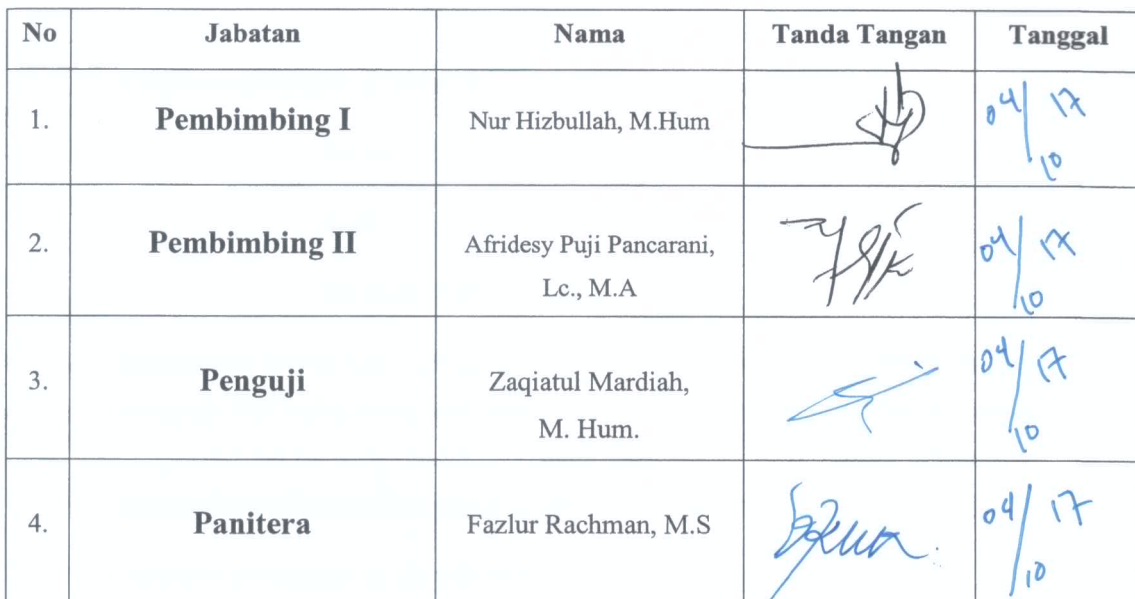 No Jabatan Nama Tanda Tangan Tanggal
1. Pembimbing I Nur Hizbullah, M.Hum 04/10 17
2. Pembimbing II Afridesy Puji Pancarani, 04/10 17
Lc., M.A
3. Penguji Zaqiatul Mardiah, 04/10 17
M. Hum.
4. Panitera Fazlur Rachman, M.S 04/10 17